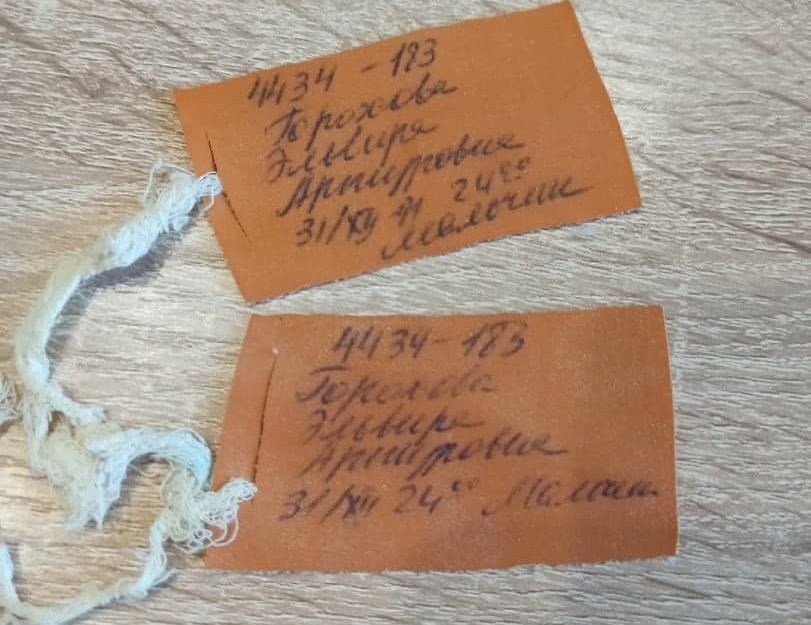 4434 - 183
Горохова
Эльвира
Артуровна
31/XII 24⁰⁰
Мальчик
4434 - 183
Горохова
Эльвира
Артуровна
31/XII 24⁰⁰ Мальчик